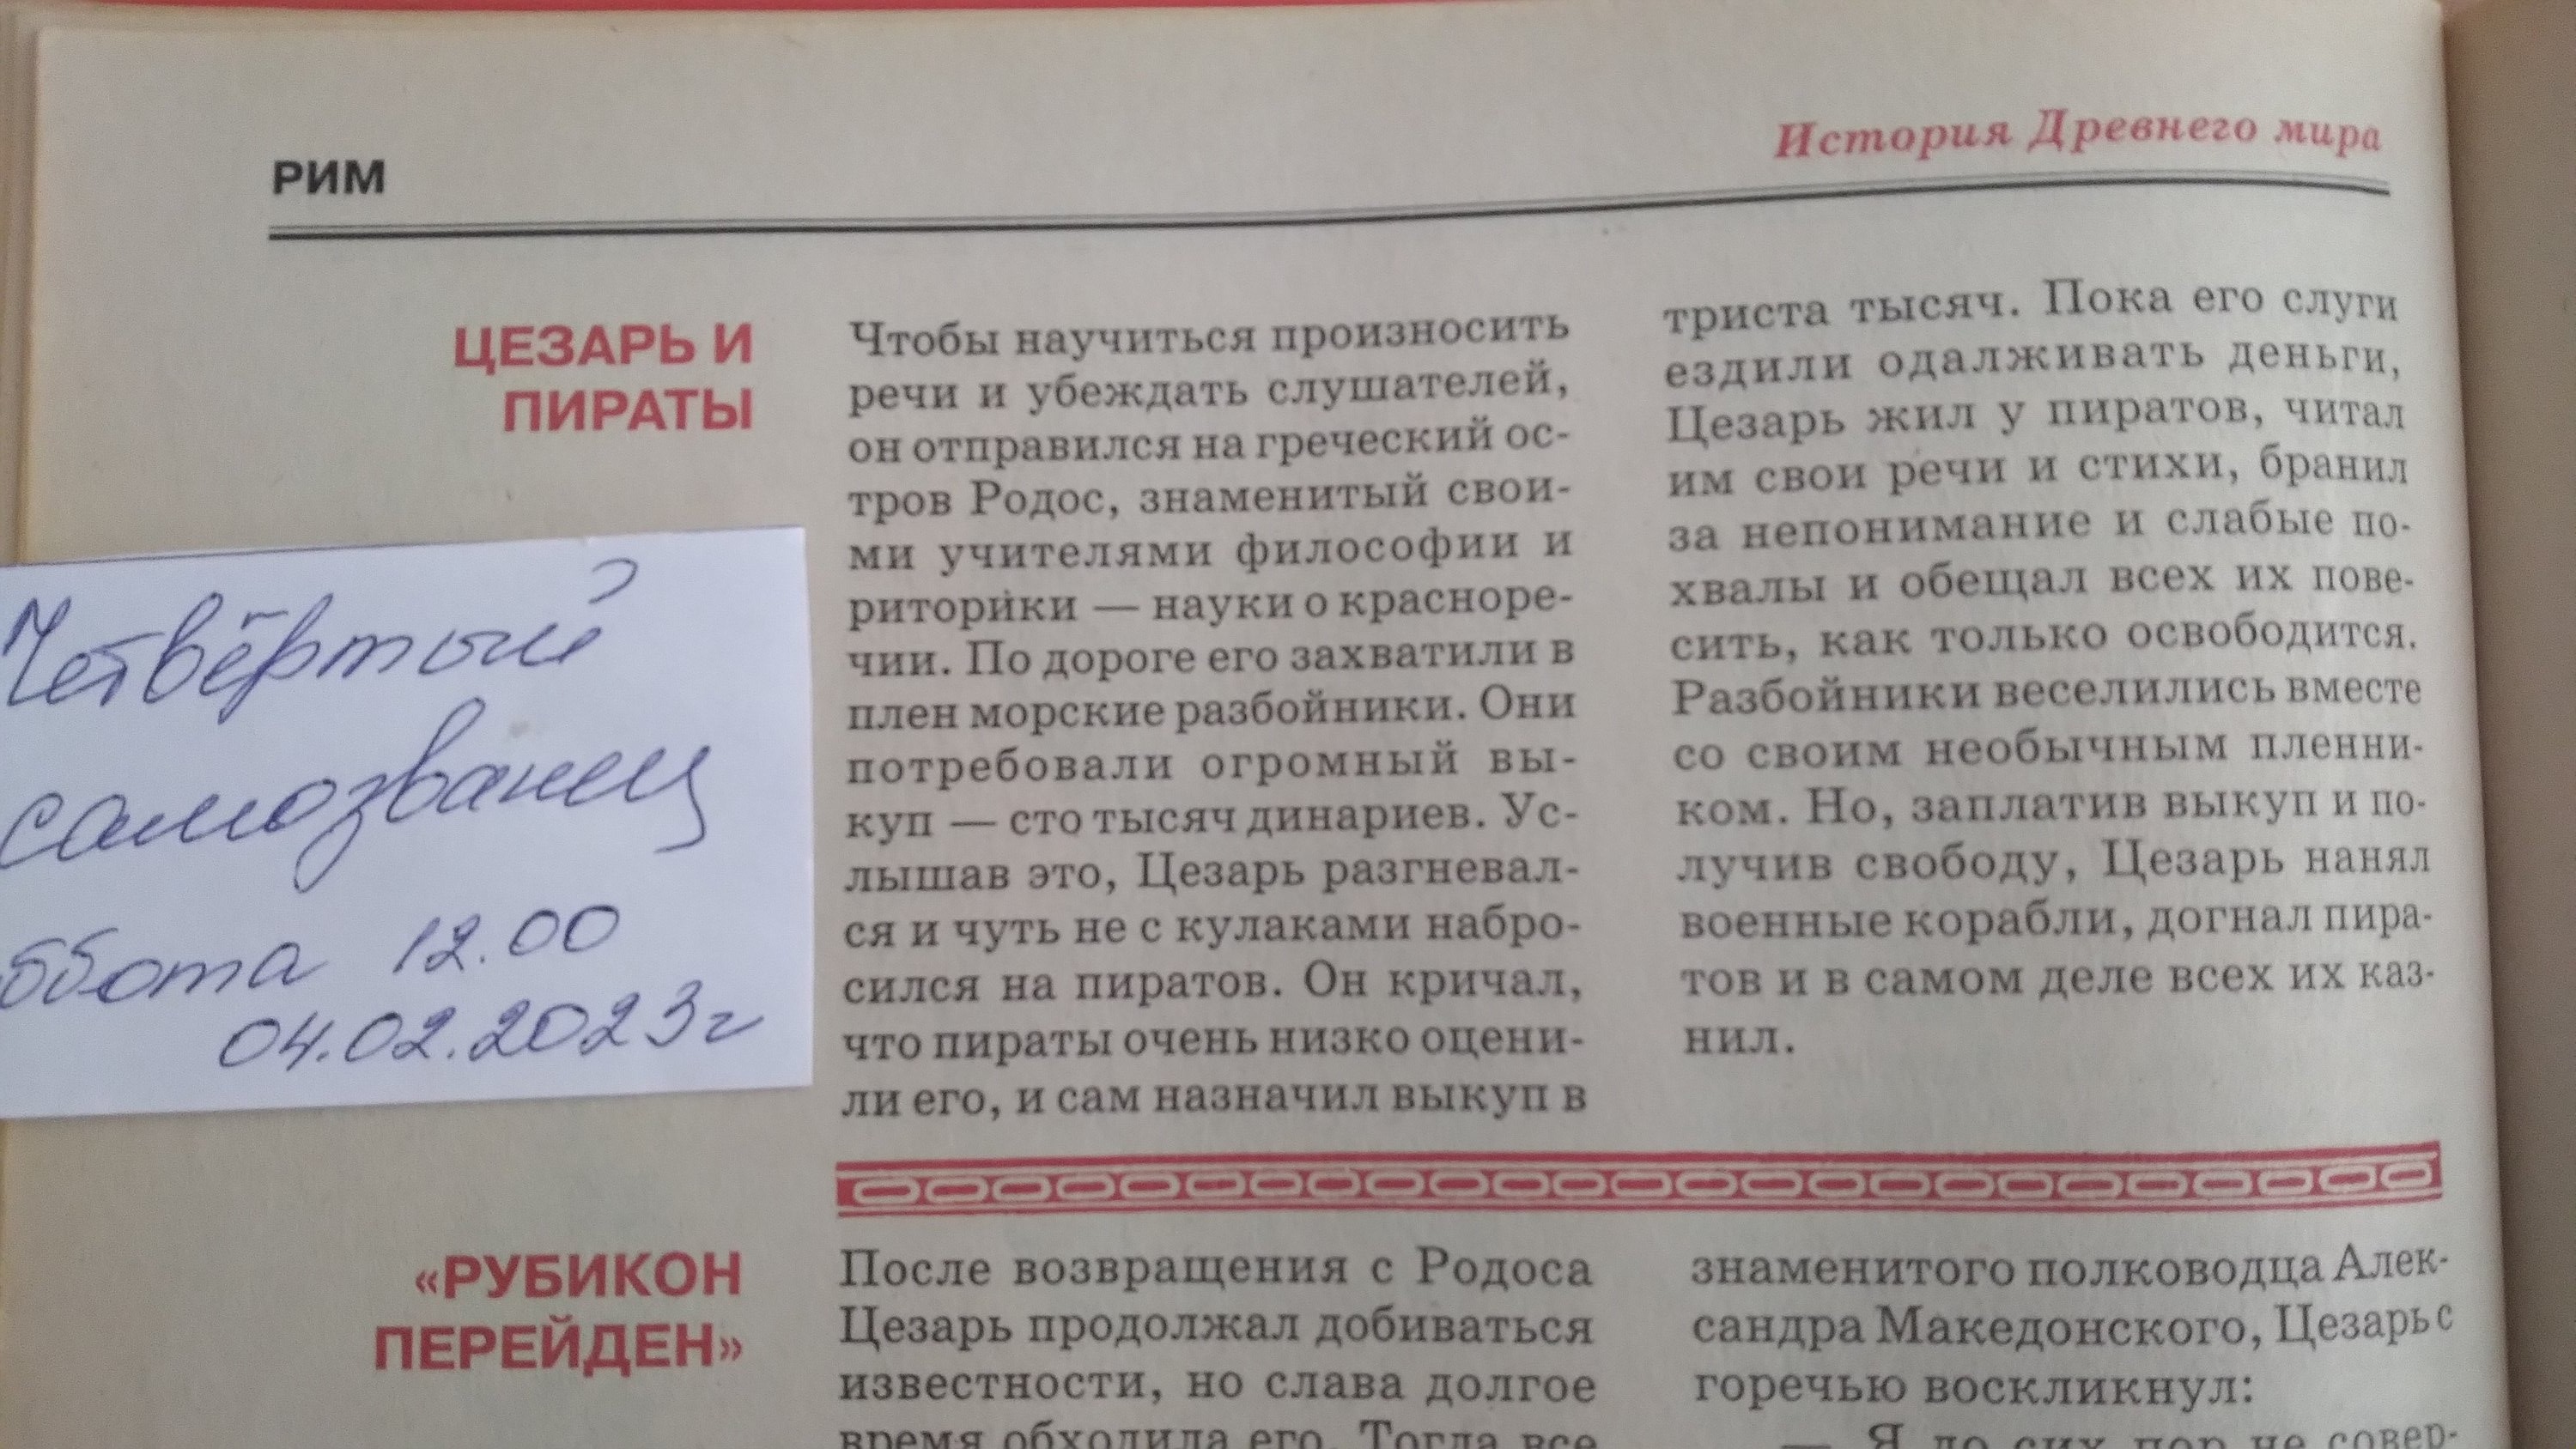 РИМ
История Древнего мира
ЦЕЗАРЬ И
ПИРАТЫ
Чтобы научиться произносить
речи и убеждать слушателей,
он отправился на греческий ос-
тров Родос, знаменитый свои-
ми учителями философии и
риторики — науки о красноре-
чии. По дороге его захватили в
плен морские разбойники. Они
потребовали огромный вы-
куп — сто тысяч динариев. Ус-
лышав это, Цезарь разгневал-
ся и чуть не с кулаками набро-
сился на пиратов. Он кричал,
что пираты очень низко оцени-
ли его, и сам назначил выкуп в
триста тысяч. Пока его слуги
ездили одалживать деньги,
Цезарь жил у пиратов, читал
им свои речи и стихи, бранил
за непонимание и слабые по-
хвалы и обещал всех их пове-
сить, как только освободится.
Разбойники веселились вместе
со своим необычным пленни-
ком. Но, заплатив выкуп и по-
лучив свободу, Цезарь нанял
военные корабли, догнал пира-
тов и в самом деле всех их каз-
нил.
Четвёртый
самозванец
ббота 12.00
04.02.2023г
«РУБИКОН
ПЕРЕЙДЕН»
После возвращения с Родоса
Цезарь продолжал добиваться
известности, но слава долгое
время обходила его. Тогда все
знаменитого полководца Алек-
сандра Македонского, Цезарь с
горечью воскликнул:
— Я до сих пор не совер-